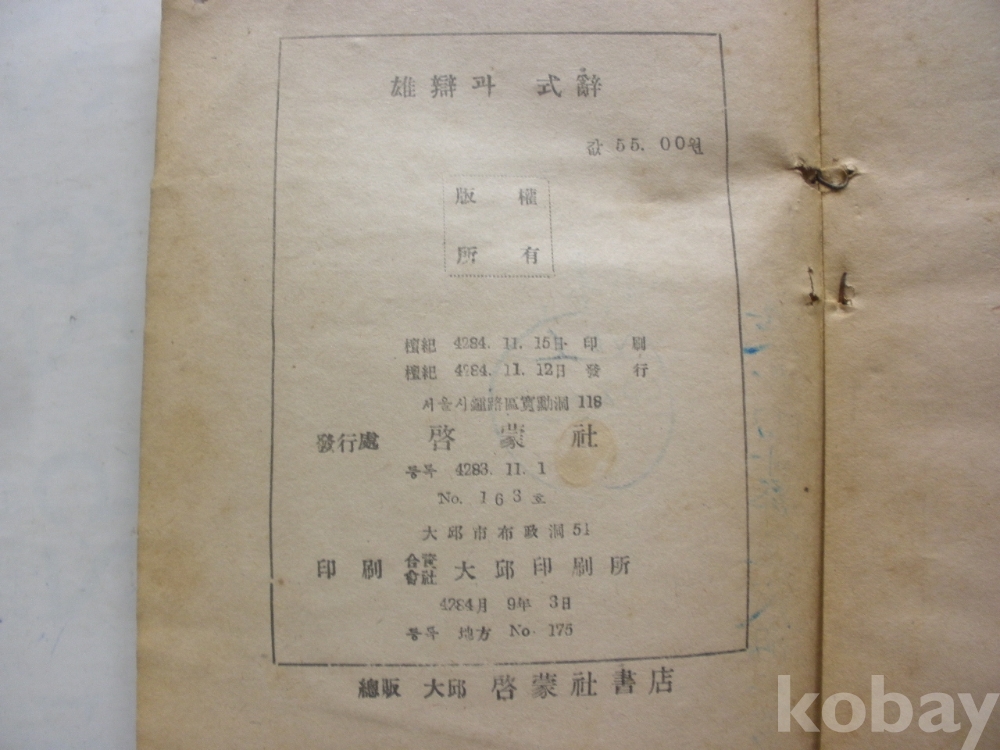 雄辯과 式辭
값 55.00원
版權
所有
檀紀 4284. 11. 15日 印刷
檀紀 4284. 11. 12日 發行
서울시鍾路區寬勳洞 118
發行處 啓蒙社
등록 4283. 11. 1
No. 163호
大邱市布政洞 51
印刷 合資會社 大邱印刷所
4284月 9年 3日
등록 地方 No 175
總販 大邱 啓蒙社書店
kobay